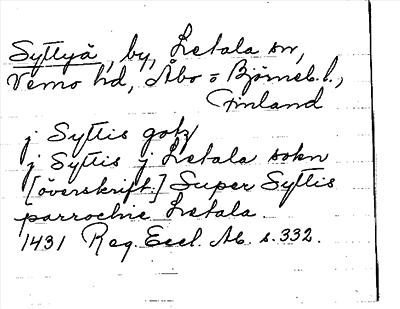 Syttyä, by, Letala sn,
Vemo hd, Åbo o Björneb. l.,
Finland
j Syttis gotz
j Syttis j Letala sokn
[överskrift.] Super Syttis
parrochie Letala.
1431 Reg. Eccl. Ab. s. 332.